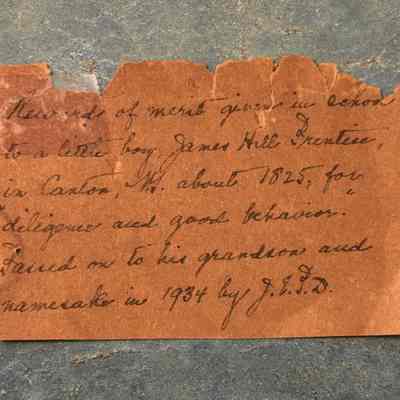 Rewards of merit given in school
to a little boy, James Hill Prentice,
in Canton, about 1825, for
diligence and good behavior."
Passed on to his grandson and
namesake in 1934 by J.E.P.D.